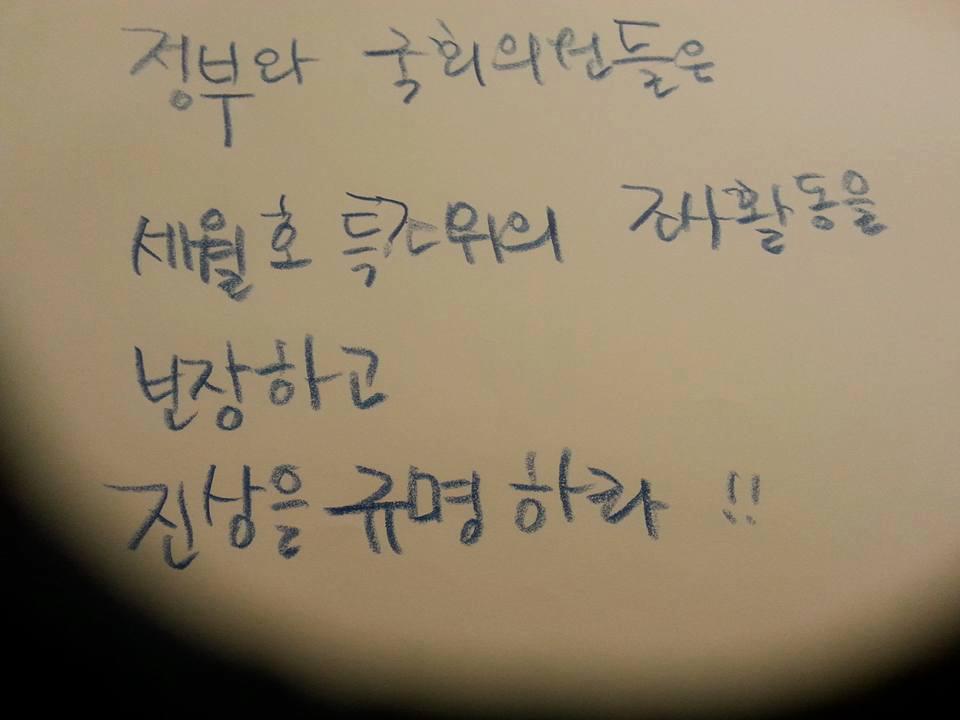 정부와 국회의원들은
세월호 특조위의 조사활동을
보장하고
진상을 규명하라 !!